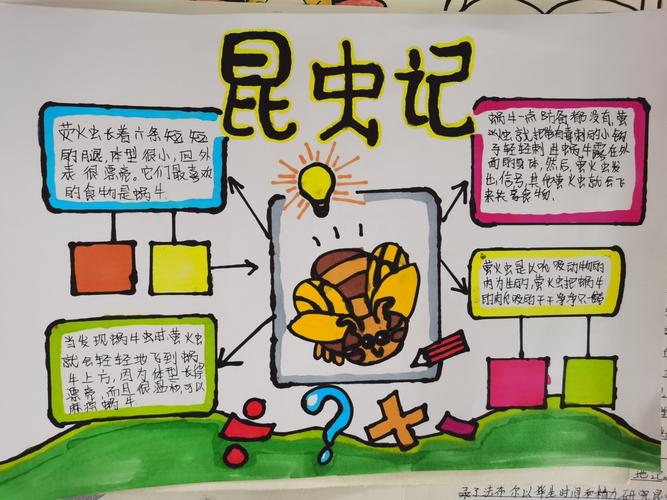 昆虫记
萤火虫长着六条短短
的腿,体型很小,但外
表很漂亮。它们最喜欢
的食物是蜗牛.
蜗牛一点防备都没有,萤
火虫就把带有毒刺的小钩
子轻轻刺进蜗牛露在外
面的身体,然后,萤火虫发
出信号,其他萤火虫就会飞
来共享食物.
萤火虫是以吮吸动物的
肉为生的,萤火虫把蜗牛
的肉吮吸的干干净净
当发现蜗牛虫时,萤火虫
就会轻轻地飞到蜗
牛上方,因为体型长得
漂亮,而且很温和,可以
麻痹蜗牛